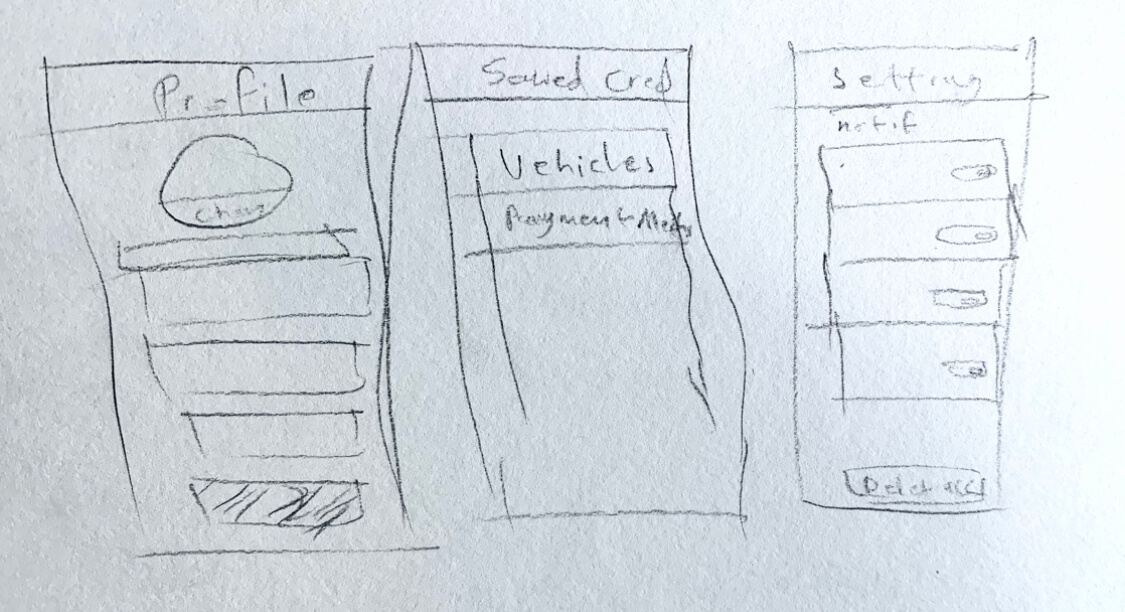 Profile
Chang
Saved Cred
Vehicles
Payment Meth
Setting
notif
Delet acc